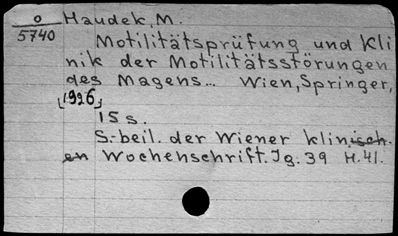 o Haudek, M.
5740
Motilitätsprüfung und Kli
nik der Motilitätsstörungen
des Magens... Wien, Springer,
[1926]
15 s.
S.-beil. der Wiener klinisch
en Wochenschrift. Jg. 39 H. 41.